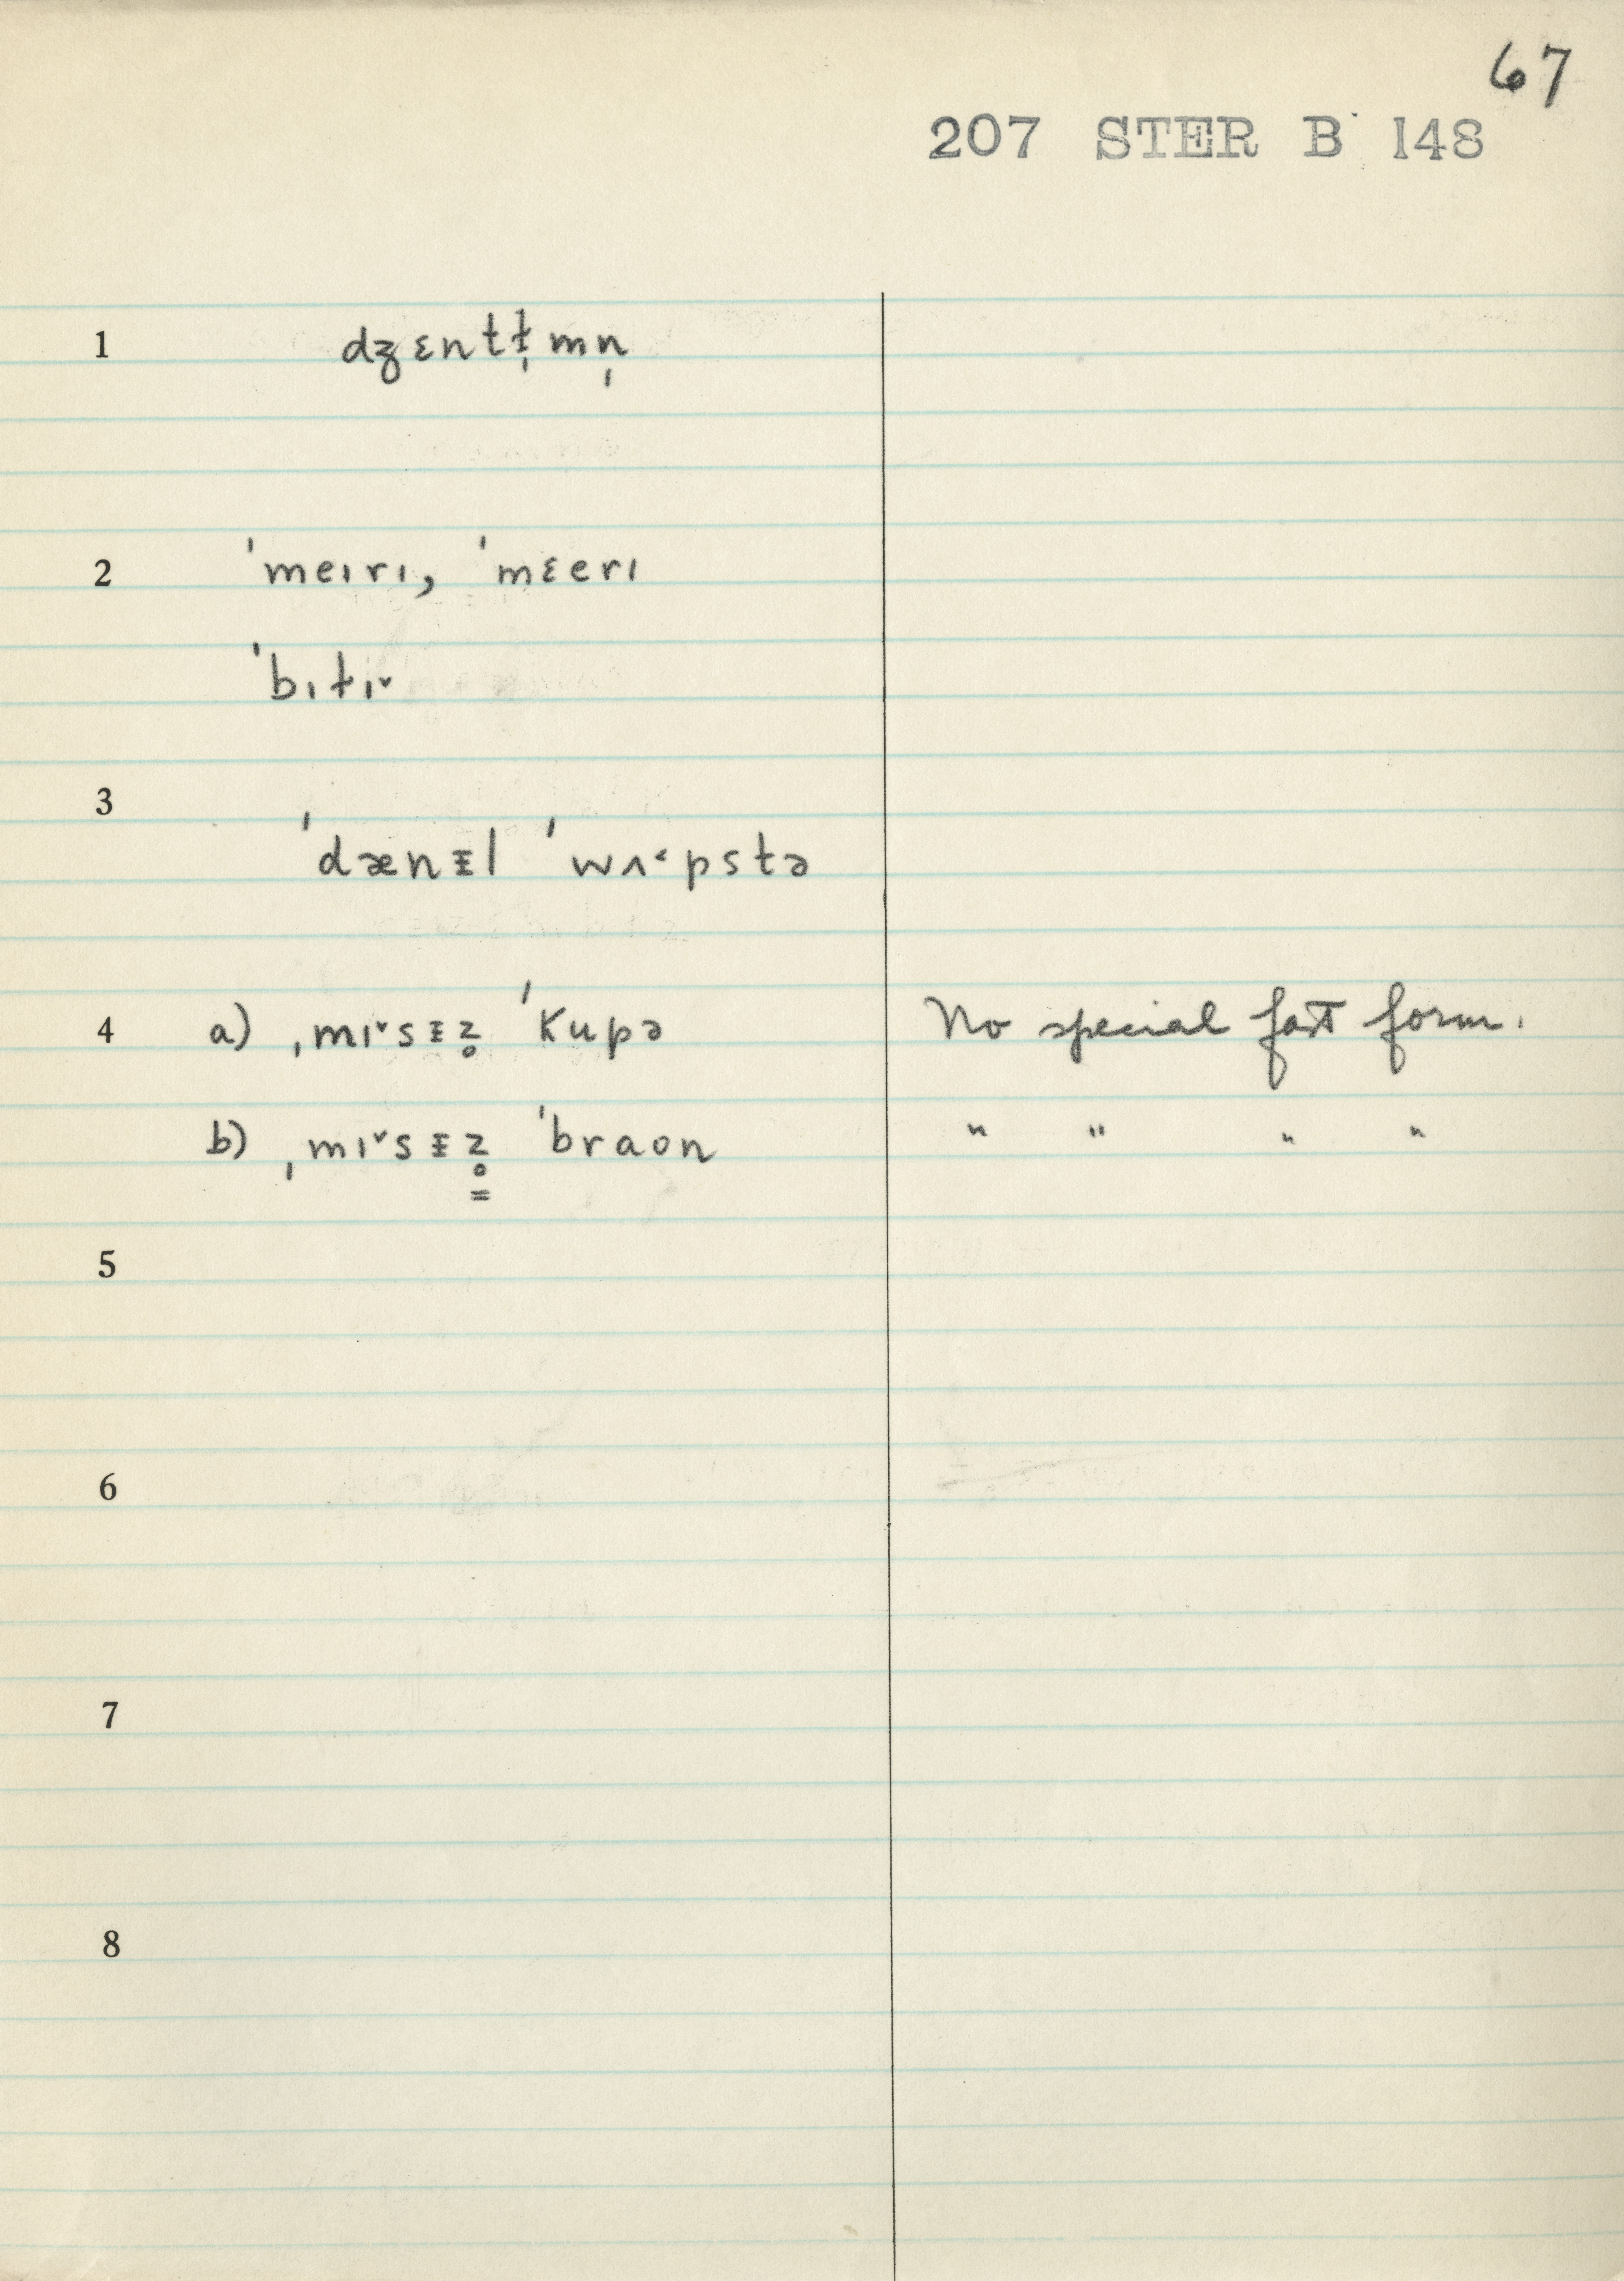 67
207 STER B 148
1 dʒɛntɫ̩mn̩
2 ˈmeɪrɪ, ˈmɛerɪ
ˈbɪt̬ɪ˅
3
ˈdænɪ̵l ˈwʌ˂pstə
4 a) ˌmɪ˅sɪ̵z̥ ˈkupə No special fast form.
b) ˌmɪ˅sɪ̵z̥ ˈbraon " " " "
5
6
7
8